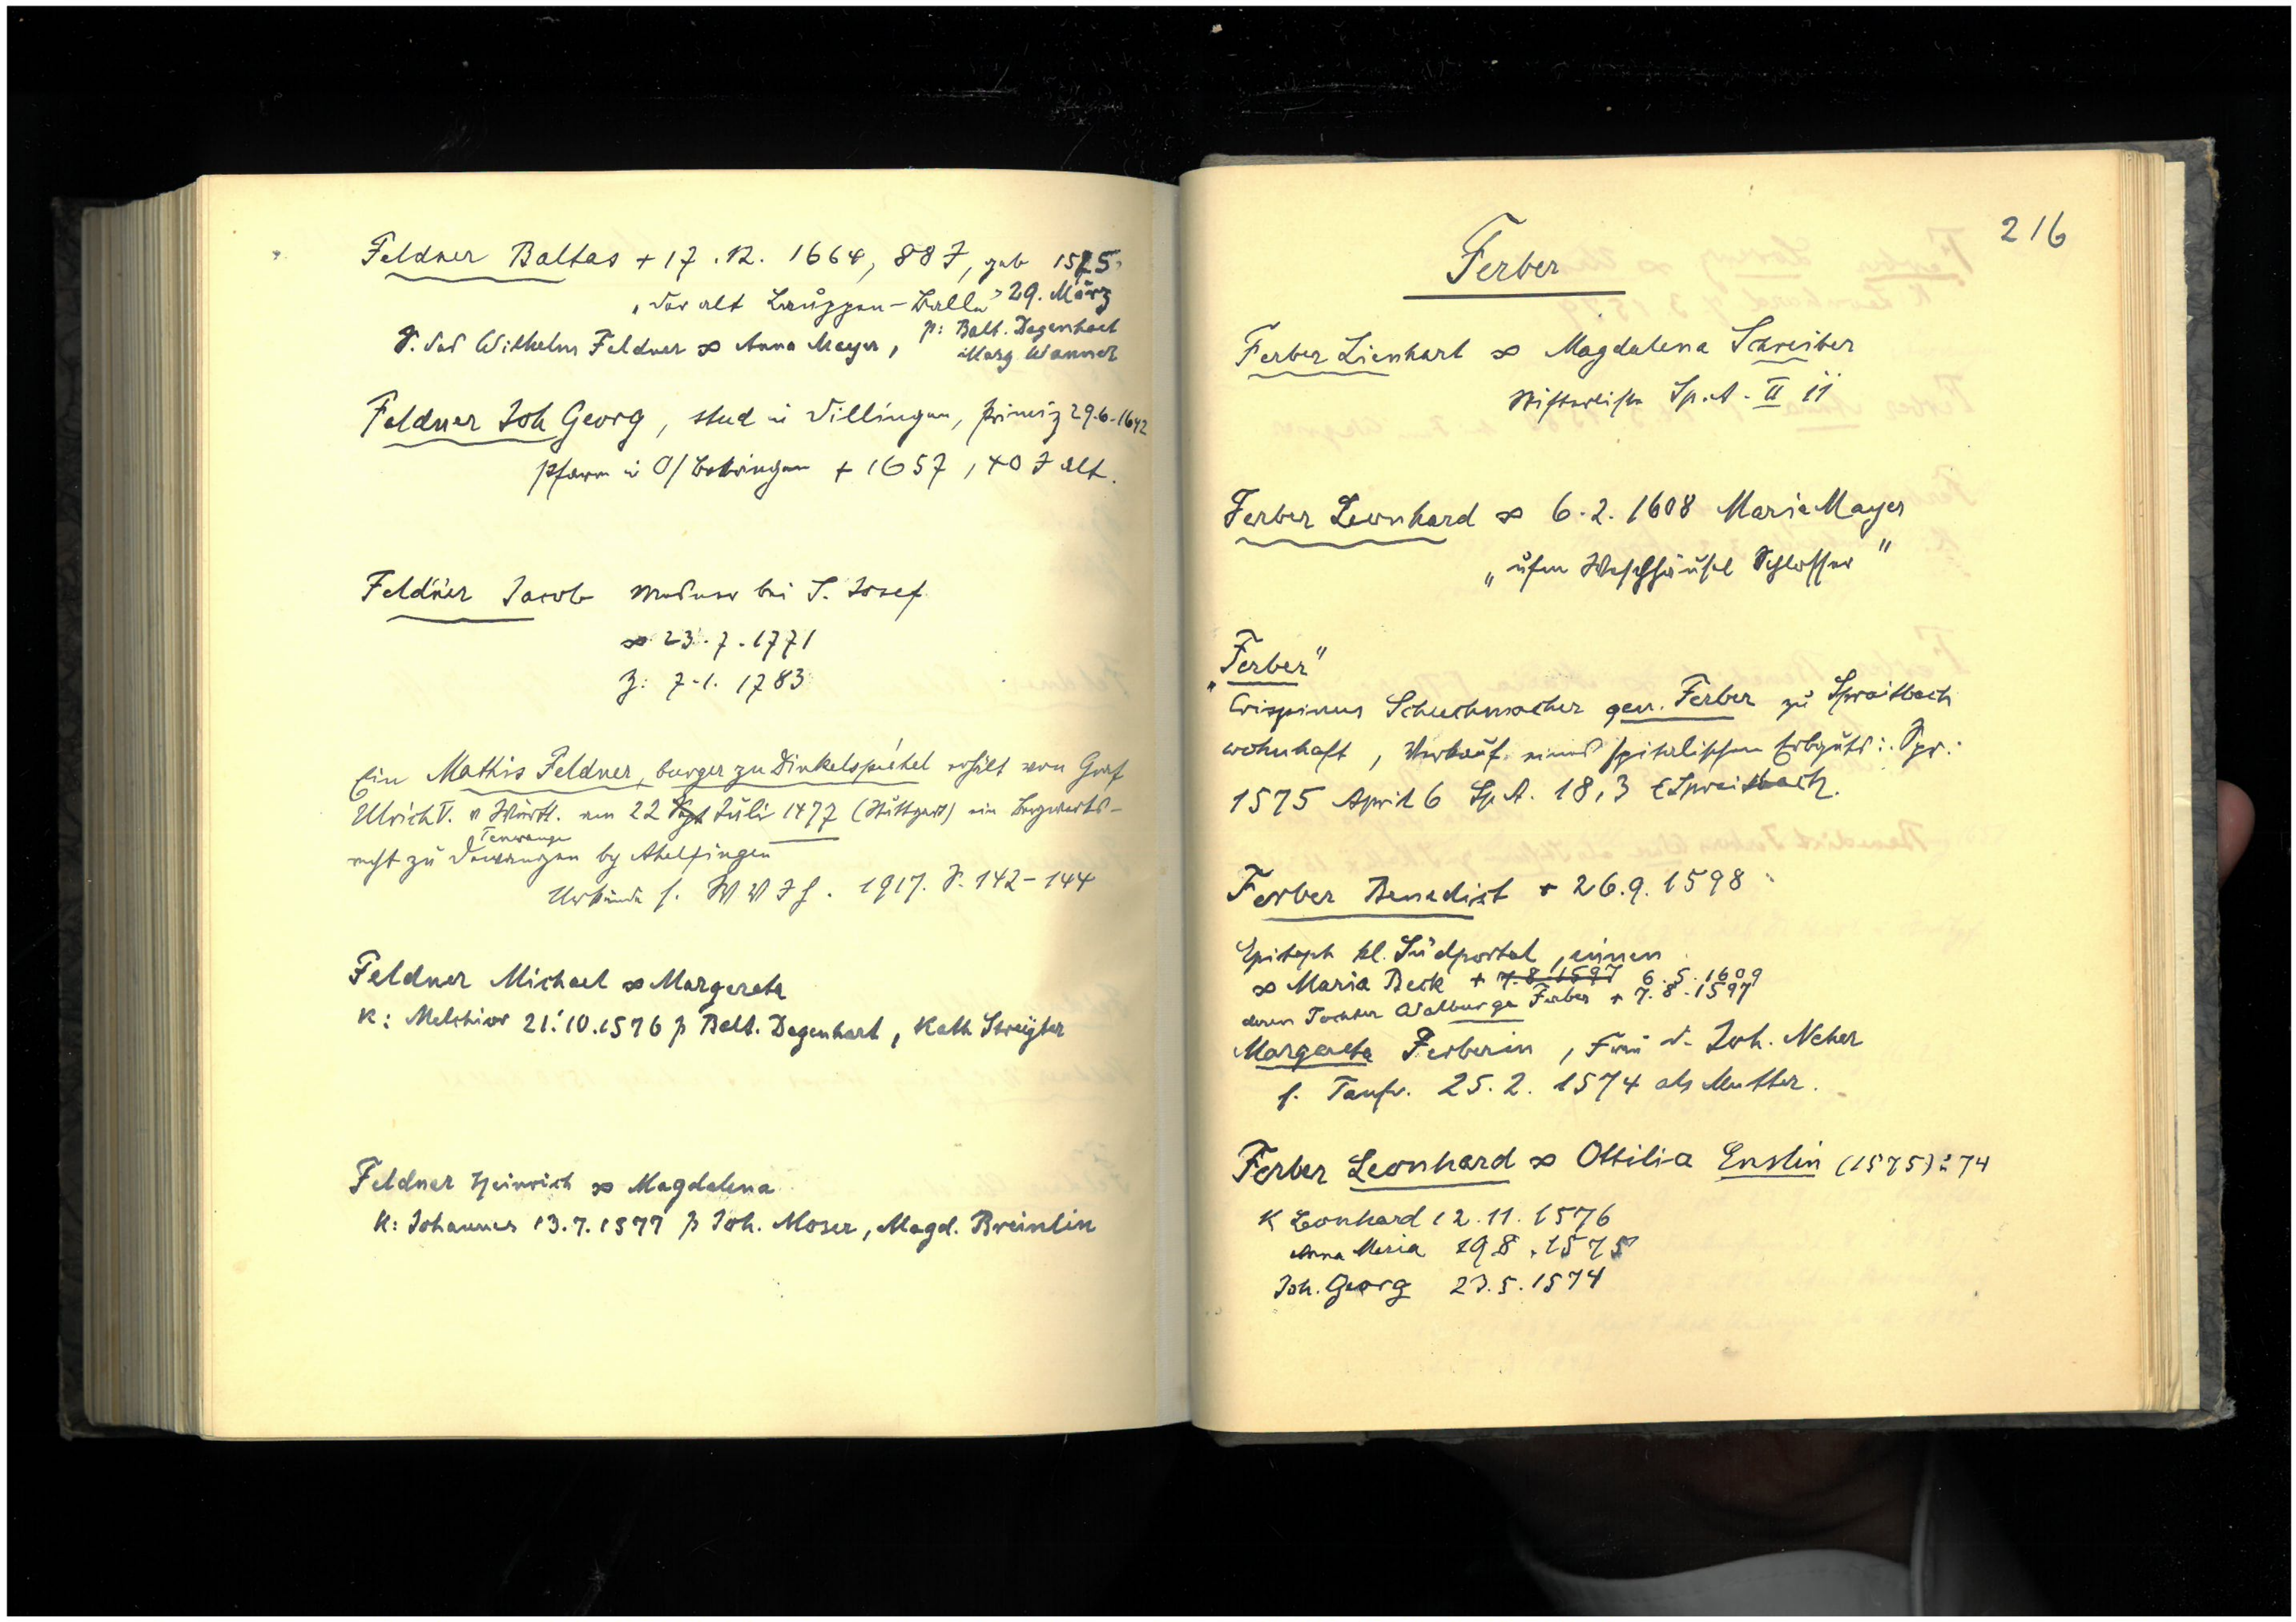 Feldner Baltas + 17.12. 1664, 88 J, geb 1575
"der alt Lauggen-Balle" 29. März
S. des Wilhelm Feldner ∞ Anna Mayer, p: Balt. Degenhart
Marg Wanner
Feldner Joh Georg, stud in Dillingen, primiz 29.6.1642
Pfarrer in O/Bebingen + 1657, 40 J alt.
Feldner Jacob Mesner bei S. Josef
∞ 23.7.1771
Z: 7.1. 1783
Ein Mathis Feldner, burger zu Dinkelspichel erhält von Graf
Ulrich V. v Württ. am 22 Juli 1477 (Stuttgart) ein Bergwerks-
Tenwange
recht zu Dewangen by Ahelfingen
Urkunde s. W V J H. 1917. S. 142-144
Feldner Michael ∞ Margareta
K: Melchior 21.10.1576 p Balt. Degenhart, Kath
Feldner Heinrich ∞ Magdalena
K: Johannes 13.7.1577 p Joh. Moser, Magd. Breinlin
216
Ferber
Ferber Lienhart ∞ Magdalena Schreiber
Stifterliste Sp.A. II 11
Ferber Leonhard ∞ 6.2. 1608 Maria Mayer
"ufm Waschhäusel Schlosser"
"Ferber"
Crispinus Schuchmacher gen. Ferber zu Spraitbach
wohnhaft, Verkauf eines spitalischen Erbguts i. Spr.
1575 April 6 Sp.A. 18,3 Spraitbach.
Ferber Benedict + 26.9.1598
Epitaph kl. Südportal, innen
∞ Maria Beck + 7.8.1597 6.5.1609
deren Tochter Walburga Ferber + 7.8.1597
Margareta Ferberin, Frau d. Joh. Neher
s. Taufr. 25.2. 1574 als Mutter.
Ferber Leonhard ∞ Ottilia Enslin (1575) 74
K Leonhard 12.11.1576
Anna Maria 19.8.1575
Joh. Georg 23.5.1574